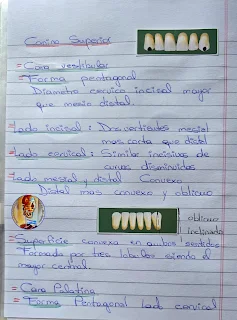 Canino Superior
= Cara vestibular
= Forma pentagonal
Diametro cervico incisal mayor
que mesio distal.
= Lado incisal: Dos vertientes mesial
mas corta que distal
= Lado cervical: Similar incisivos de
curvas disminuidas
= Lado mesial y distal Convexo
Distal mas convexo y oblicuo
oblicuo
Inclinado
= Superficie convexa en ambos sentidos
Formada por tres lobulos siendo el
mayor central.
= Cara Palatina
= Forma Pentagonal lado cervical